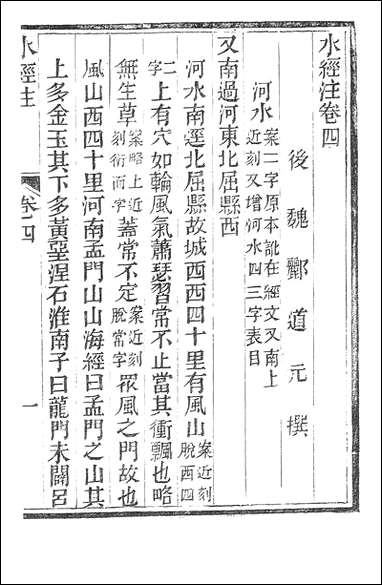 水經注卷四
後魏酈道元撰
河水案二字原本訛在經文又南上近刻又增河水四三字表目
又南過河東北屈縣西
河水南逕北屈縣故城西西四十里有風山案近刻脫西四
二字上有穴如輪風氣蕭瑟習常不止當其衝飄也略
無生草案略上近刻衍而字蓋常不定案近刻脫常字眾風之門故也
風山西四十里河南孟門山山海經曰孟門之山其
上多金玉其下多黃堊涅石淮南子曰龍門未闢呂
水經注
卷四
一